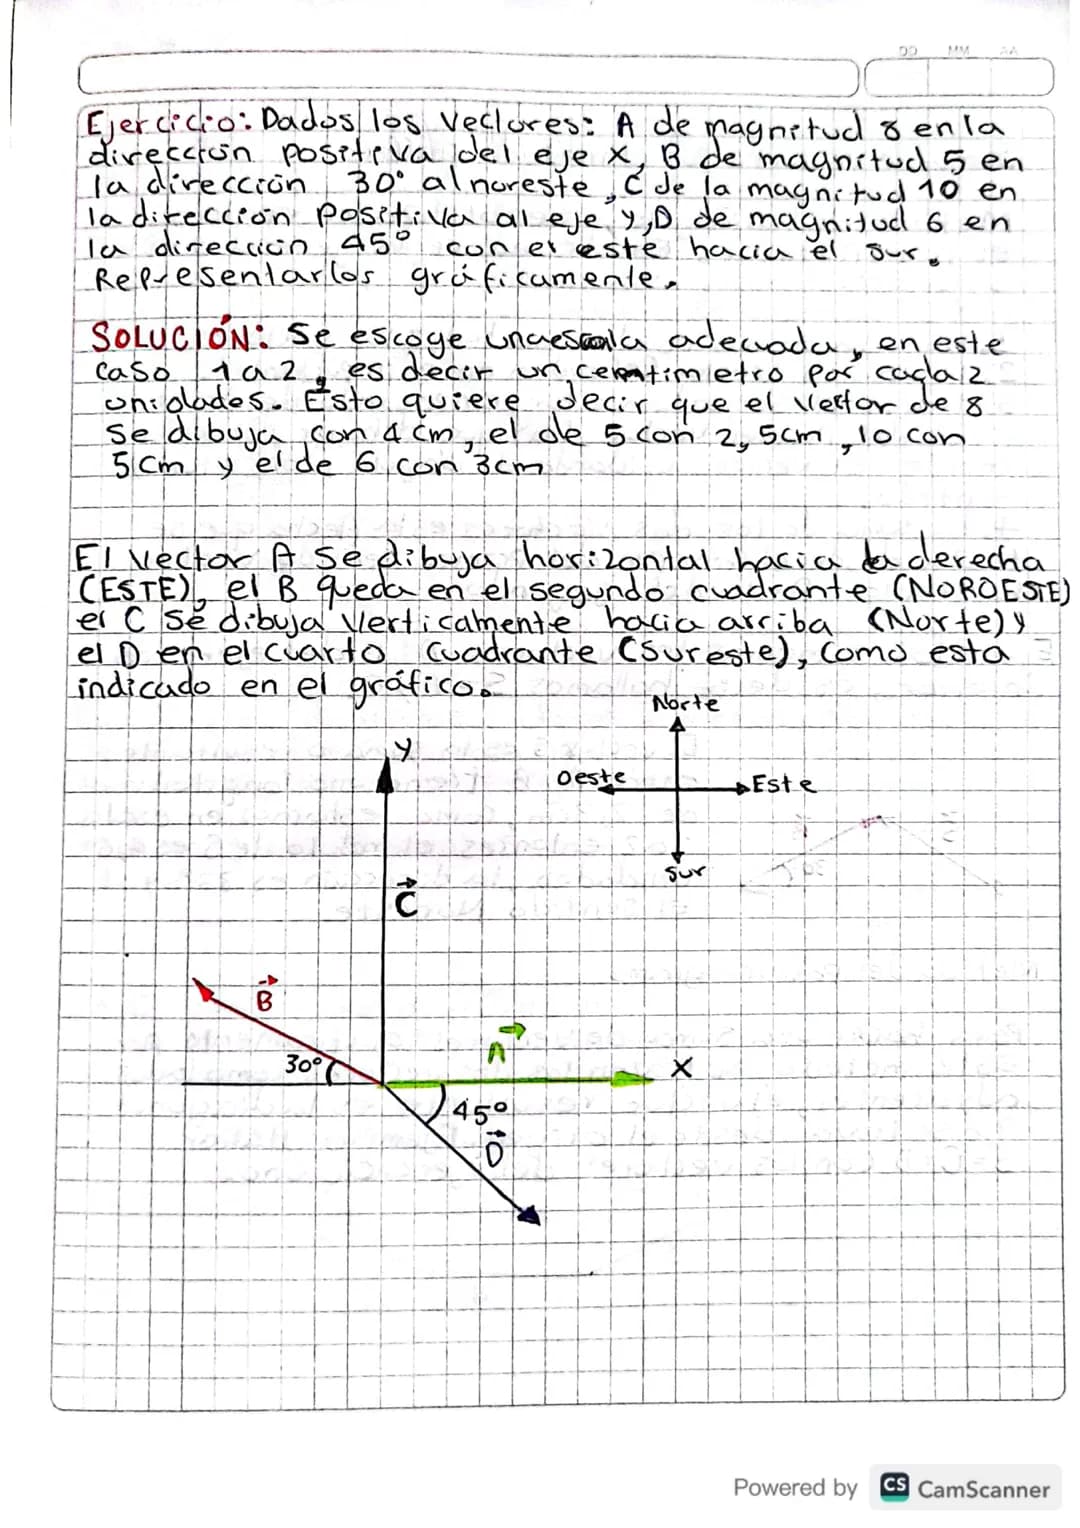 DD MM AA
Ejercicio: Dados los Vectores: A de magnitud 8 en la
dirección positiva del eje X, B de magnitud 5 en
la dirección 30° al noreste, C de la magnitud 10 en
la dirección Positiva al eje y, D de magnitud 6 en
la dirección 45° con el este hacia el sur.
Representarlos gráficamente.
SOLUCIÓN: Se escoge una escala adecuada, en este
caso 1 a 2, es decir un centimetro por cada 2
unidades. Esto quiere decir que el vector de 8
Se dibuja con 4 cm, el de 5 con 2,5cm, 10 con
5cm y el de 6 con 3cm
El vector A Se dibuja horizontal hacia la derecha
(ESTE), el B queda en el segundo cuadrante (NOROESTE)
el C Se dibuja Verticalmente hacia arriba (Norte) y
el D en el cuarto cuadrante (Sureste), como esta
indicado en el gráfico.
Norte
Oeste
Este
Sur
y
C
B
30°
A
X
45°
D
Powered by CS CamScanner